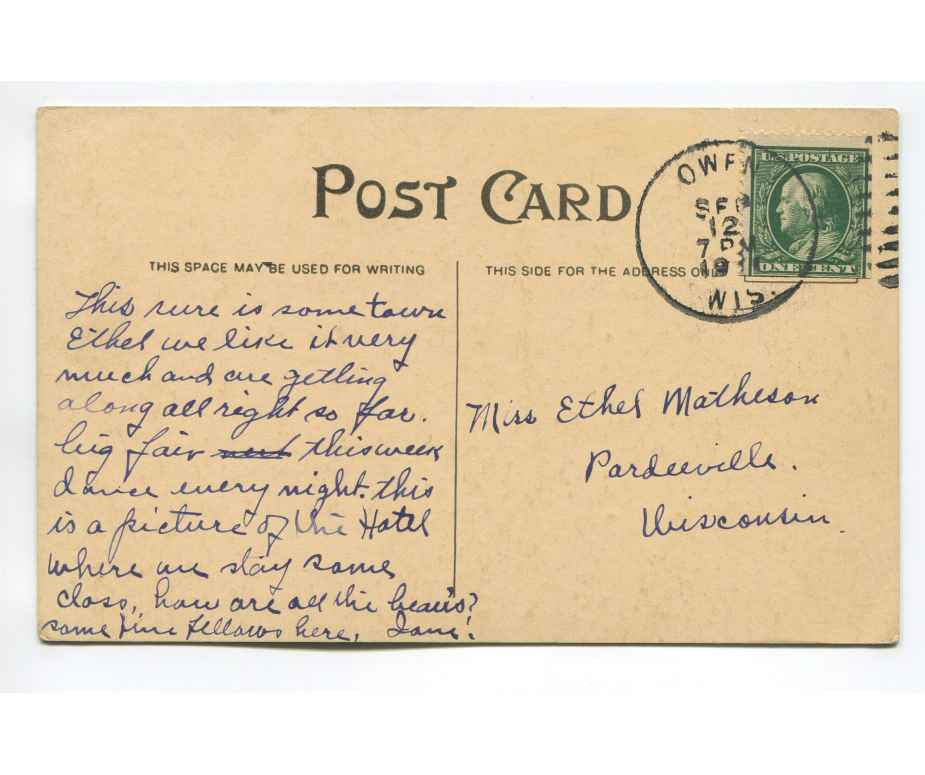 POST CARD
THIS SPACE MAY BE USED FOR WRITING
This sure is some town
Ethel we like it very
much and are getting
along all right so far.
big fair next this week
dance every night. this
is a picture of the Hotel
where we stay some
class, how are all the beau's?
some fine fellows here,
THIS SIDE FOR THE ADDRESS ONLY
OWEN
SEP
12
7 P
19
WIS.
U.S. POSTAGE
ONE CENT
Miss Ethel Matheson
Pardeeville.
Wisconsin.